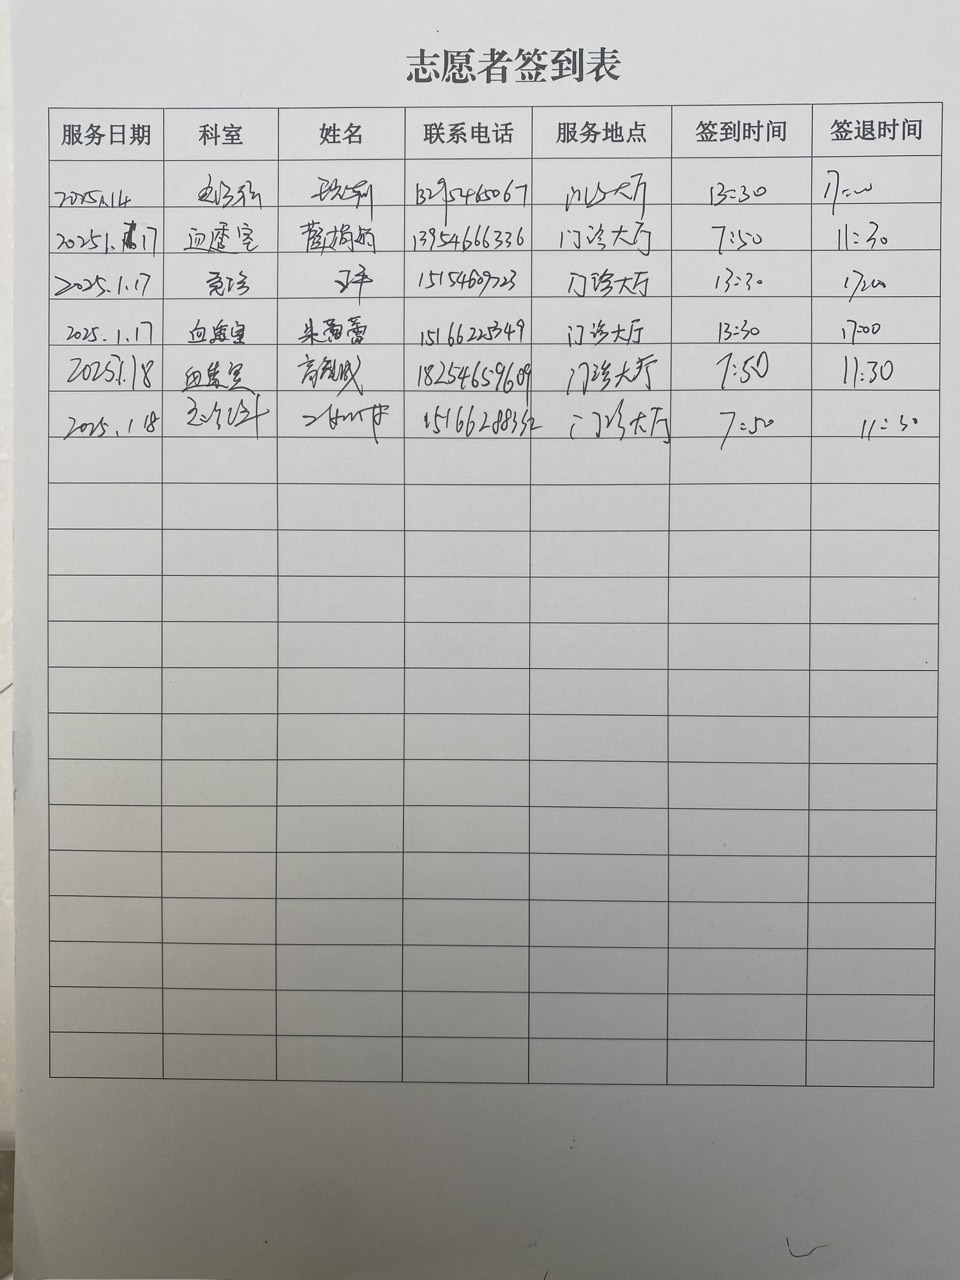 志愿者签到表
服务日期 科室 姓名 联系电话 服务地点 签到时间 签退时间
2025.1.14 13295465067 门诊大厅 13:30 17:00
2025.1.17 血透室 13954666336 门诊大厅 7:50 11:30
2025.1.17 15154609723 门诊大厅 13:30 17:00
2025.1.17 血透室 朱蕾蕾 15166225349 门诊大厅 13:30 17:00
2025.1.18 血透室 18254659609 门诊大厅 7:50 11:30
2025.1.18 15166288332 门诊大厅 7:50 11:30